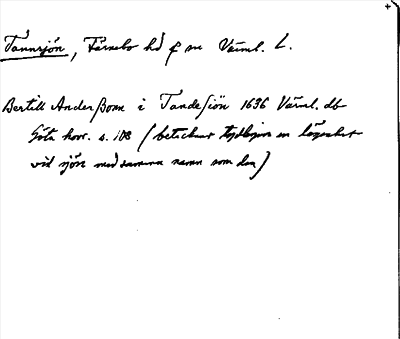 Tannsjön, Färnebo hd o sn Värml. L.
Bertill Anderßonn i Tandesiön 1636 Värml. db
Göta hovr. s. 108 (betecknar tydligen en lägenhet
vid sjön med samma namn som den)